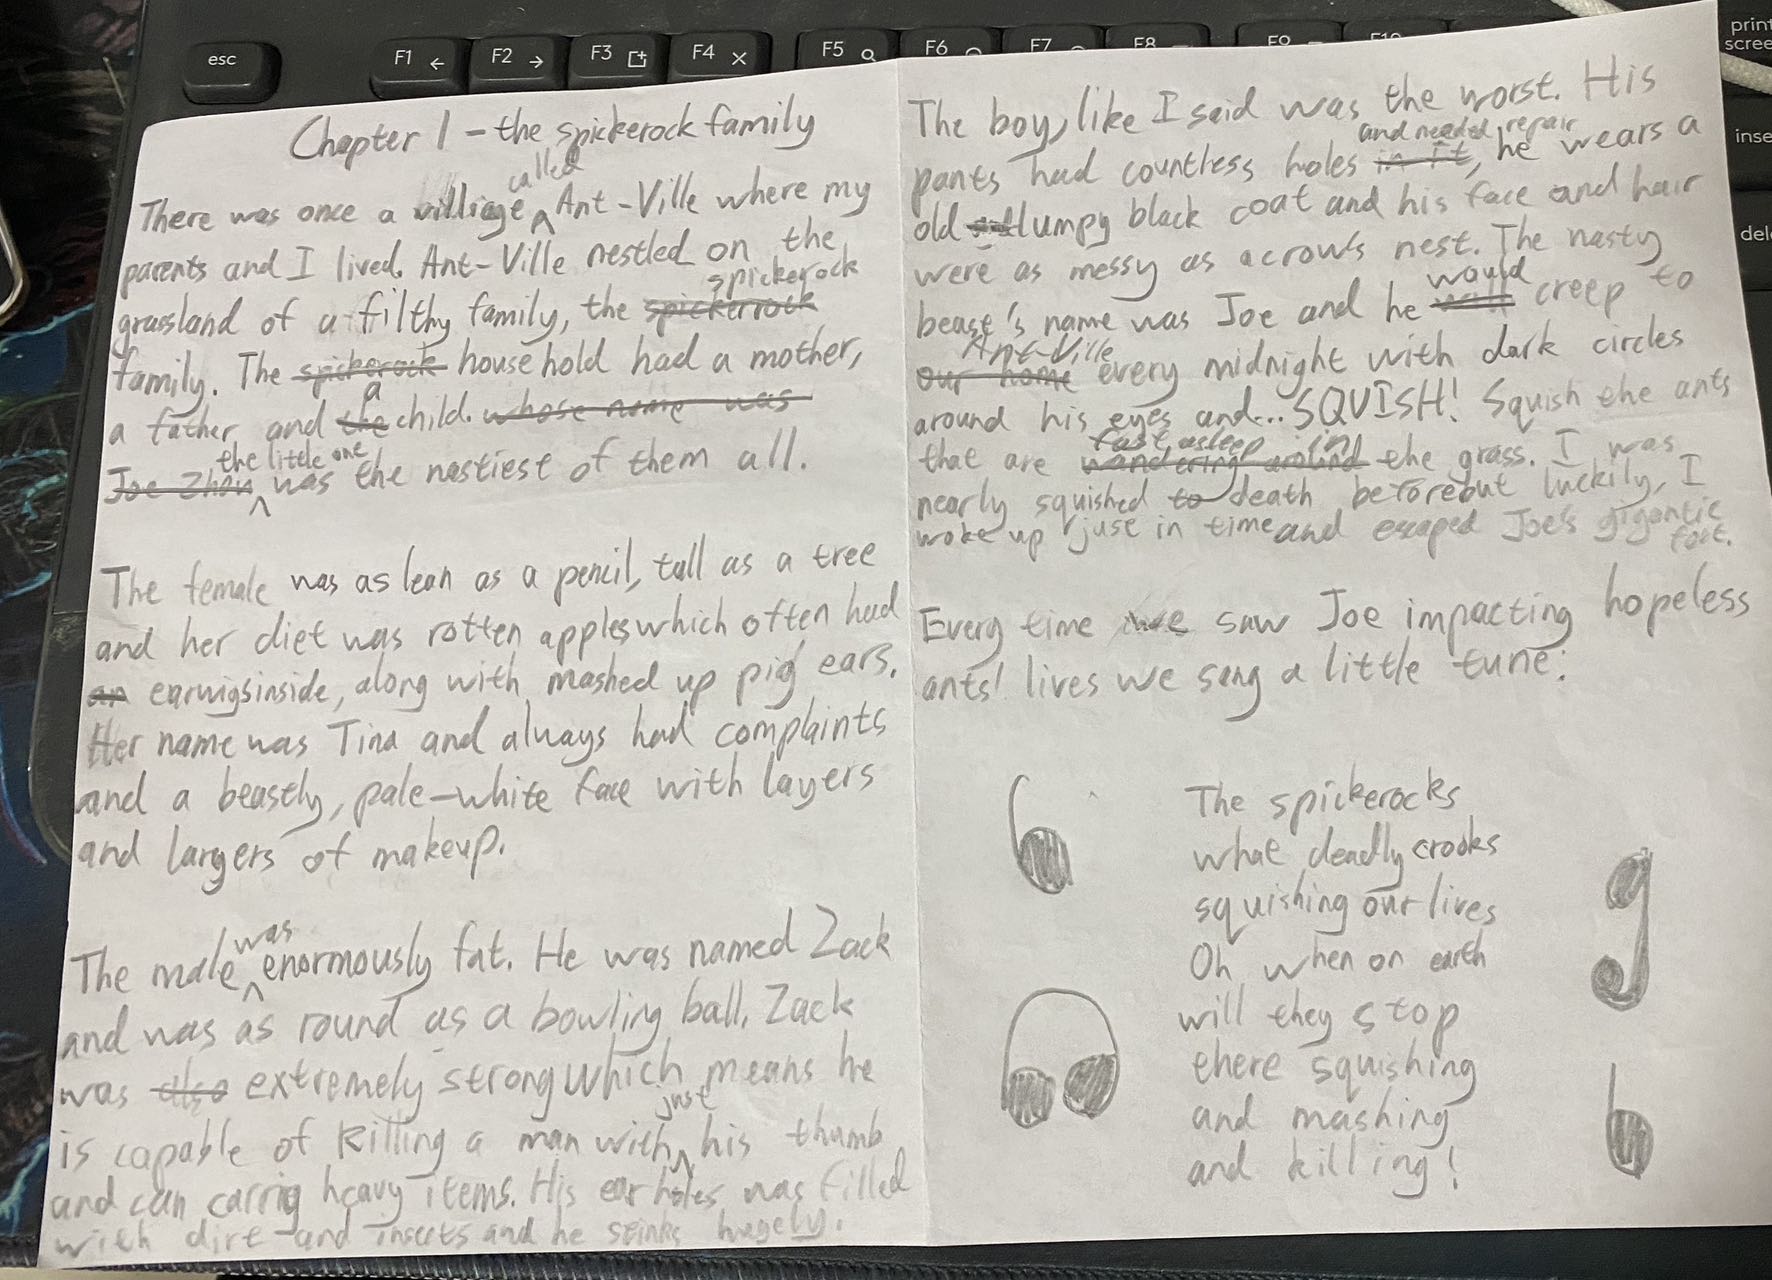 esc
F1
F2
F3
F4
F5
F6
F7
F8
F9
F10
print
scree
inse
dele
Chapter 1 - the spickerock family
There was once a villiage called Ant-Ville where my
parents and I lived. Ant-Ville nestled on the
grassland of a filthy family, the spickerrock spickerock
family. The spickerock household had a mother,
a father, and the a child. whose name was
Joe Zhou the little one was the nastiest of them all.
The female was as lean as a pencil, tall as a tree
and her diet was rotten apples which often had
an earwigs inside, along with mashed up pig ears.
Her name was Tina and always had complaints
and a beastly, pale-white face with layers
and largers of makeup.
The male was enormously fat. He was named Zack
and was as round as a bowling ball. Zack
was also extremely strong which means he
is capable of killing a man with just his thumb
and can carrig heavy items. His ear holes was filled
with dirt and insects and he stinks hugely.
The boy, like I said was the worst. His
pants had countless holes in it and needed repair, he wears a
old lumpy black coat and his face and hair
were as messy as a crow's nest. The nasty
beast's name was Joe and he would creep to
our home Ant-Ville every midnight with dark circles
around his eyes and... SQUISH! Squish the ants
that are wandering around fast asleep in the grass. I was
nearly squished to death before but luckily, I
woke up just in time and escaped Joe's gigantic
foot.
Every time we saw Joe impacting hopeless
ants' lives we sang a little tune:
The spickerocks
what deadly crooks
squishing our lives
Oh when on earth
will they stop
there squishing
and mashing
and killing!